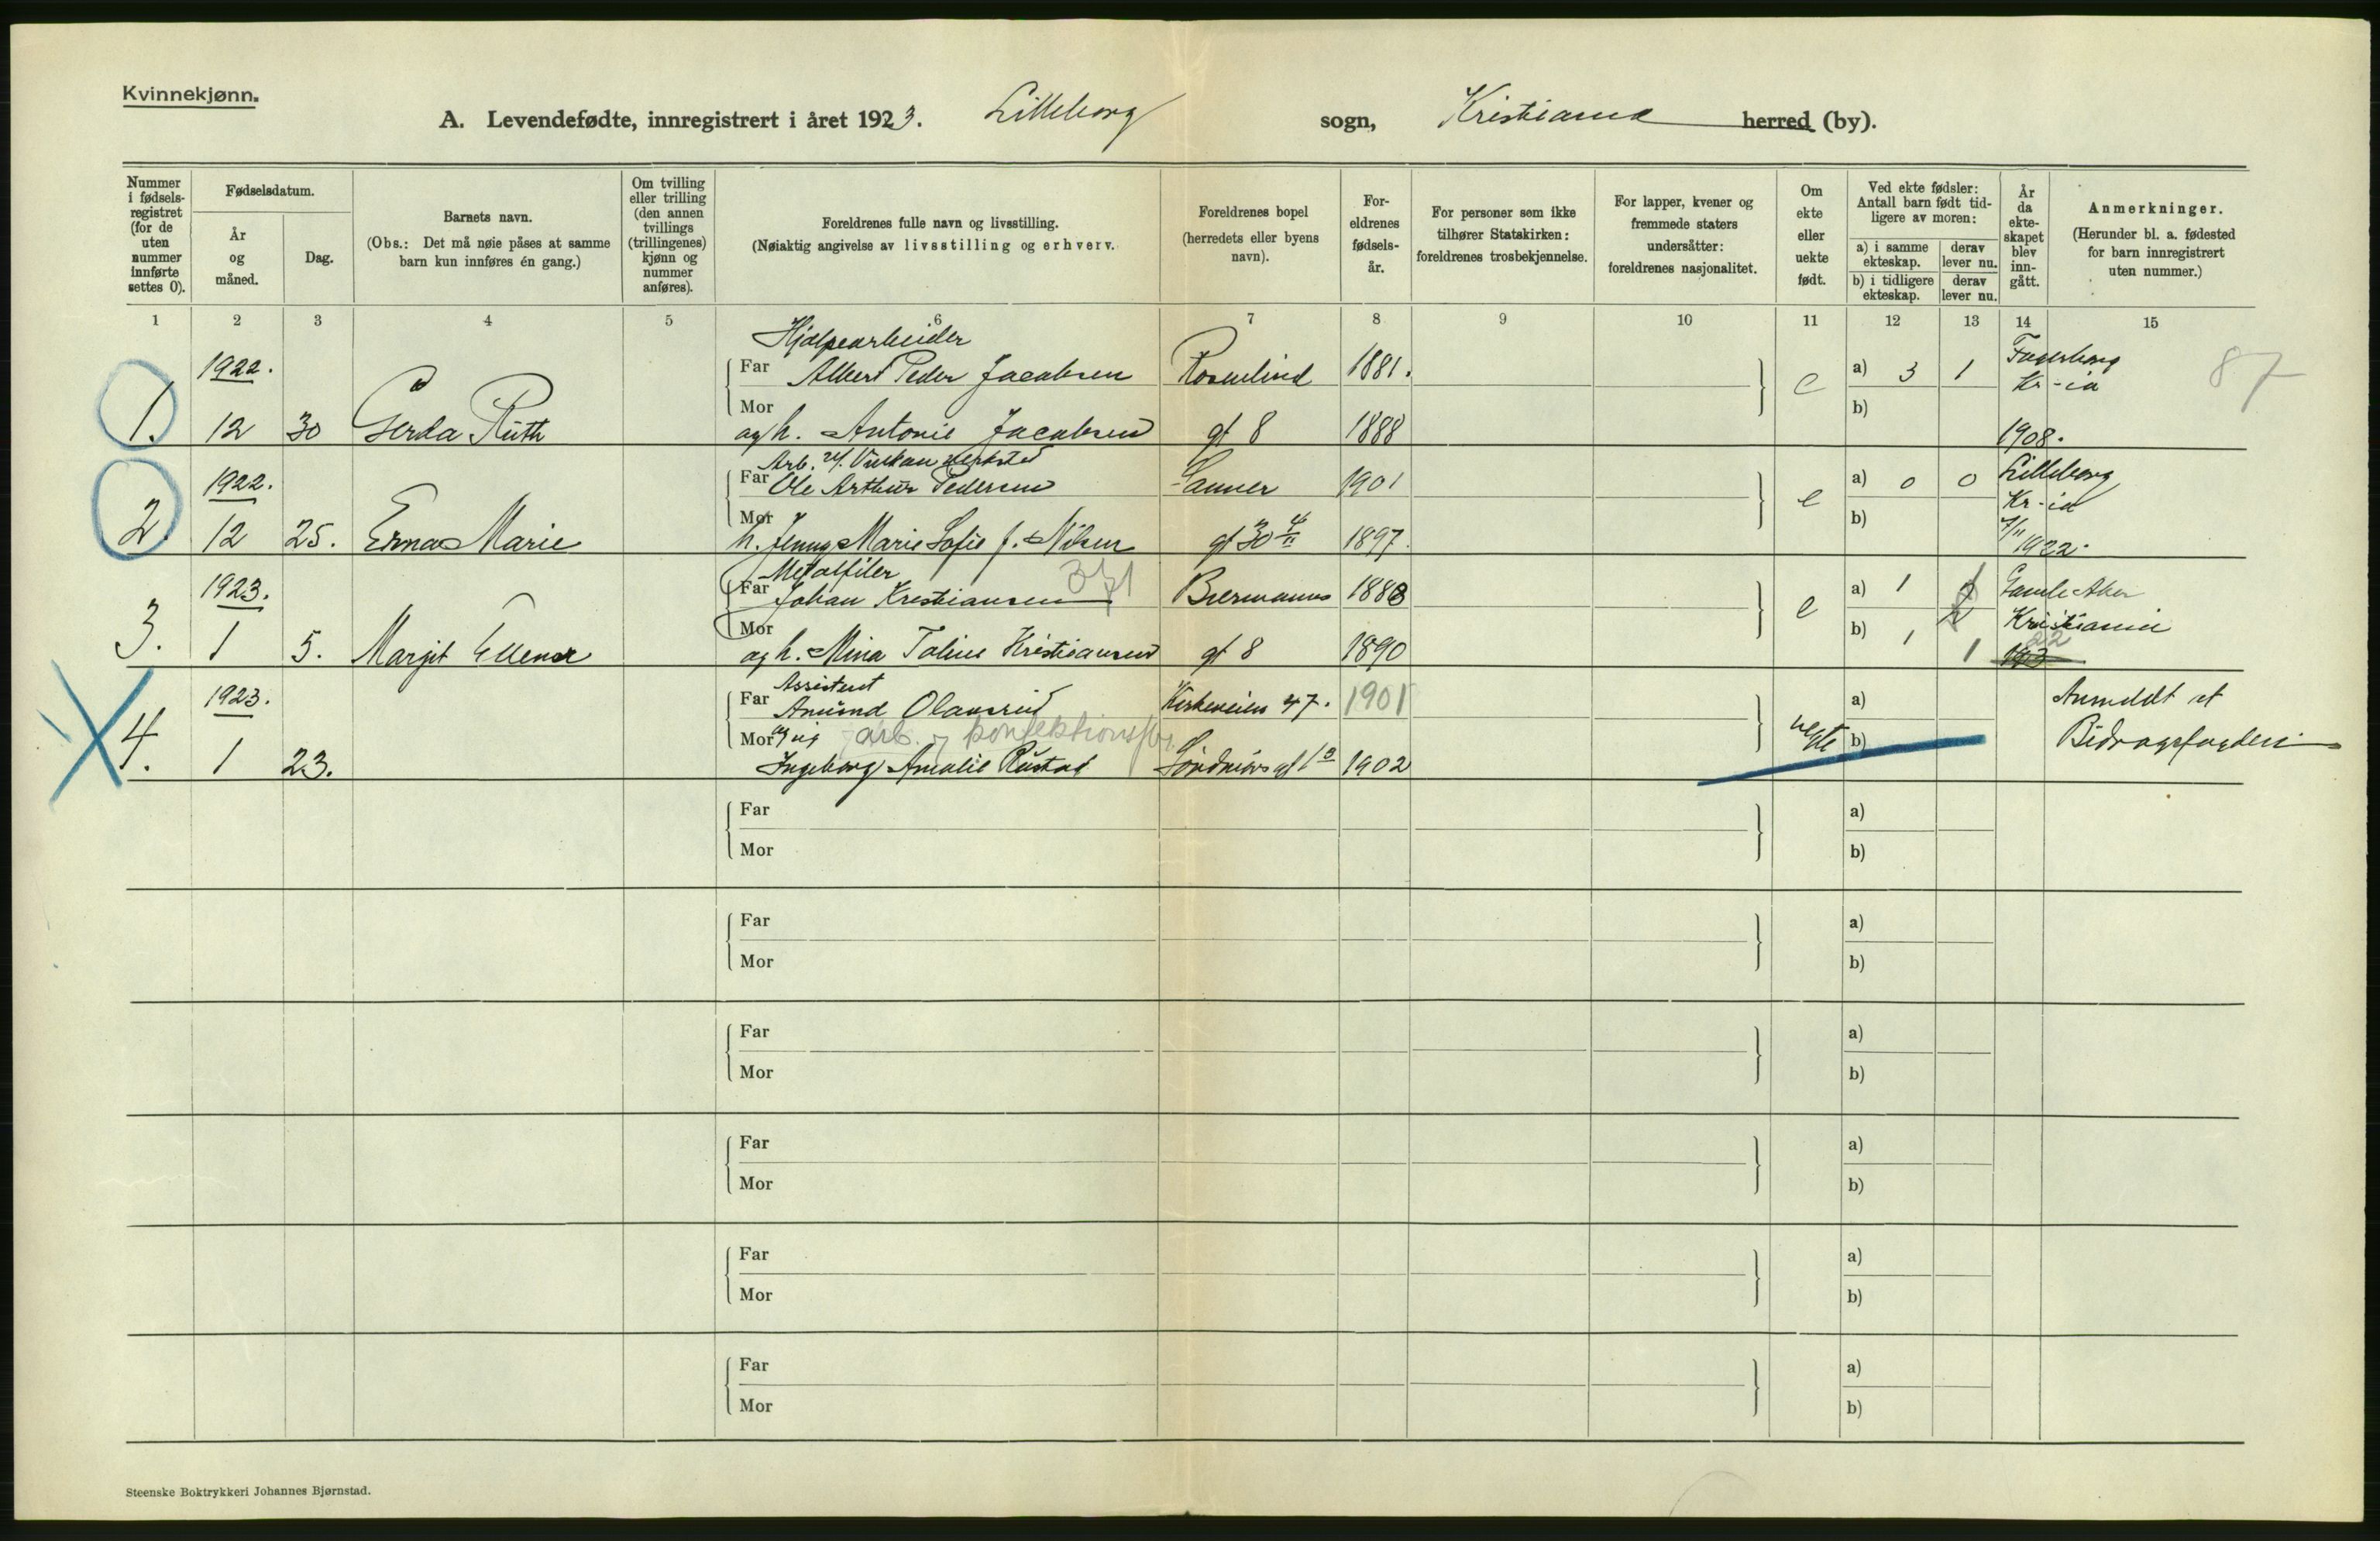 Kvinnekjønn.
A. Levendefødte, innregistrert i året 1923. Lilleborg sogn, Kristiania herred (by).
Nummer i fødselsregistret (for de uten nummer innførte settes 0).
Fødselsdatum.
År og måned.
Dag.
Barnets navn.
(Obs.: Det må nøie påses at samme barn kun innføres én gang.)
Om tvilling eller trilling (den annen tvillings (trillingenes) kjønn og nummer anføres).
Foreldrenes fulle navn og livsstilling.
(Nøiaktig angivelse av livsstilling og erhverv.
Foreldrenes bopel (herredets eller byens navn).
Foreldrenes fødselsår.
For personer som ikke tilhører Statskirken: foreldrenes trosbekjennelse.
For lapper, kvener og fremmede staters undersåtter: foreldrenes nasjonalitet.
Om ekte eller uekte født.
Ved ekte fødsler: Antall barn født tidligere av moren:
a) i samme ekteskap. derav lever nu.
b) i tidligere ekteskap. derav lever nu.
År da ekteskapet blev inngått.
Anmerkninger.
(Herunder bl. a. fødested for barn innregistrert uten nummer.)
1 2 3 4 5 6 7 8 9 10 11 12 13 14 15
Hjælpearbeider
1922. Far Albert Peder Jacobsen Rosenlind 1881. e a) 3 1 Fagerborg Kr-ia 87
1. 12 30 Gerda Ruth Mor og h. Antonie Jacobsen gt 8 1888 b) 1908.
Arb. v. Vulkan verksted
1922. Far Ole Arthur Pedersen Sanner 1901 e a) 0 0 Lilleborg Kr-ia
2. 12 25. Erna Marie Mor h. Jenny Marie Sofie f. Nilsen gt 30 1897. b) 7/11 1922.
Metalfiler 371
1923. Far Johan Kristiansen Biermanns 1888 e a) 1 Gamle Aker
3. 1 5. Margit Ellenor Mor og h. Mina Toline Kristiansen gt 8 1890 b) 1 1 Kristiania 22
Assistent
1923. Far Amund Olausrud Kirkeveien 47. 1901 uekte a) Anmeldt at
4. 1 23. Mor og pig arb. konfektionsfbr. b) Bidragsfogden
Ingeborg Amalie Rustad Søndmørs gt 1902
Far a)
Mor b)
Far a)
Mor b)
Far a)
Mor b)
Far a)
Mor b)
Far a)
Mor b)
Far a)
Mor b)
Steenske Boktrykkeri Johannes Bjørnstad.